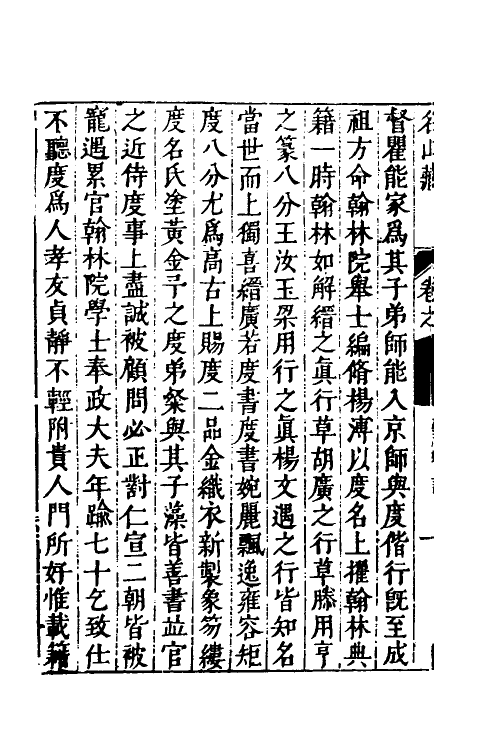 名山藏 卷之
督瞿能家爲其子弟師能入京師與度偕行旣至成
祖方命翰林院舉士編脩楊溥以度名上擢翰林典
籍一時翰林如解縉之眞行草胡廣之行草滕用亨
之篆八分王汝玉梁用行之眞楊文遇之行皆知名
當世而上獨喜縉廣若度書度書婉麗飄逸雍容矩
度八分尤爲高古上賜度二品金織衣新製象笏縷
度名氏塗黃金予之度弟粲與其子藻皆善書竝官
之近侍度事上盡誠被顧問必正對仁宣二朝皆被
寵遇累官翰林院學士奉政大夫年踰七十乞致仕
不聽度爲人孝友貞靜不輕附貴人門所好惟載籍